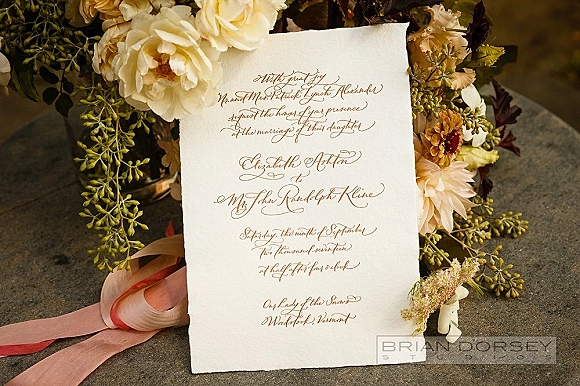 With great joy
Mr. and Mrs. Patrick Lynate Alexander
request the honor of your presence
at the marriage of their daughter
Elizabeth Ashton
to
Mr. John Randolph Kline
Saturday, the ninth of September
two thousand seventeen
at half after four o'clock
Our Lady of the Snows
Woodstock, Vermont
BRIAN DORSEY
STUDIOS